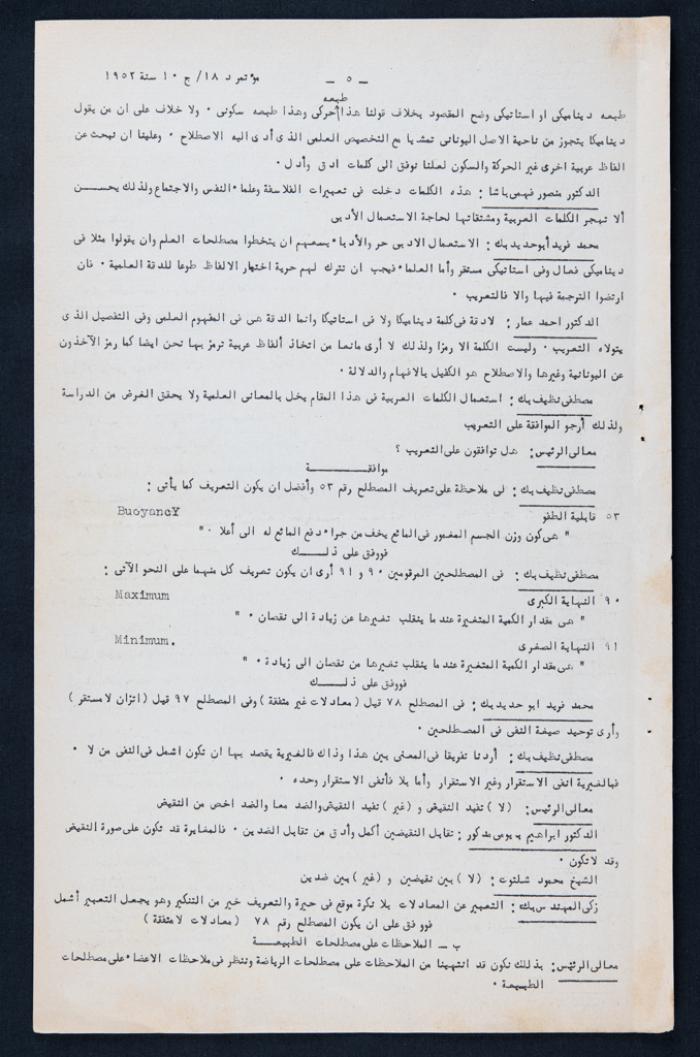 — ٥ —
مؤتمر د ١٨/ ج ١٠ سنة ١٩٥٢
طبعه
طبعه ديناميكى او استاتيكى وضح المقصود بخلاف قولنا هذا حركى وهذا طبعه سكونى ٠ ولا خلاف على ان من يقول
ديناميكا يتجوز من ناحية الاصل اليونانى تمشيا مع التخصيص العلمى الذى أدى اليه الاصطلاح ٠ وعلينا ان نبحث عن
الفاظ عربية اخرى غير الحركة والسكون لعلنا نوفق الى كلمات ادق وأدل ٠
الدكتور منصور فهمى باشا : هذه الكلمات دخلت فى تعبيرات الفلاسفة وعلماء النفس والاجتماع ولذلك يحسن
ألا تهجر الكلمات العربية ومشتقاتها لحاجة الاستعمال الأدبى
محمد فريد أبو حديد بك : الاستعمال الادبى حر والأدباء يسعهم ان يتخطوا مصطلحات العلم وان يقولوا مثلا فى
ديناميكى فعال وفى استاتيكى مستقر وأما العلماء فيجب ان نترك لهم حرية اختيار الالفاظ طوعا للدقة العلمية ٠ فان
ارتضوا الترجمة فبها والا فالتعريب ٠
الدكتور احمد عمار : لا دقة فى كلمة ديناميكا ولا فى استاتيكا وانما الدقة هى فى المفهوم العلمى وفى التفصيل الذى
يتولاه التعريب ٠ وليست الكلمة الا رمزا ولذلك لا أرى مانعا من اتخاذ ألفاظ عربية نرمز بها نحن ايضا كما رمز الآخذون
عن اليونانية وغيرها والاصطلاح هو الكفيل بالافهام والدلالة ٠
مصطفى نظيف بك : استعمال الكلمات العربية فى هذا المقام يخل بالمعانى العلمية ولا يحقق الغرض من الدراسة
ولذلك أرجو الموافقة على التعريب
معالى الرئيس : هل توافقون على التعريب ؟
موافقة
مصطفى نظيف بك : لى ملاحظة على تعريف المصطلح رقم ٥٣ وأفضل ان يكون التعريف كما يأتى :
٥٣ قابلية الطفو Buoyancy
" هى كون وزن الجسم المغمور فى المائع يخف من جراء دفع المائع له الى أعلا ٠ "
فووفق على ذلك
مصطفى نظيف بك : فى المصطلحين المرقومين ٩٠ و ٩١ أرى ان يكون تعريف كل منهما على النحو الآتى :
٩٠ النهاية الكبرى Maximum
" هى مقدار الكمية المتغيرة عند ما ينقلب تغيرها عن زيادة الى نقصان ٠ "
٩١ النهاية الصغرى Minimum.
" هى مقدار الكمية المتغيرة عند ما ينقلب تغيرها من نقصان الى زيادة ٠ "
فووفق على ذلك
محمد فريد ابو حديد بك : فى المصطلح ٧٨ قيل ( معادلات غير متفقة ) وفى المصطلح ٩٧ قيل ( اتزان لا مستقر )
وأرى توحيد صيغة النفى فى المصطلحين ٠
مصطفى نظيف بك : أردنا تفريقا فى المعنى بين هذا وذاك فالغيرية يقصد بها ان تكون اشمل فى النفى من لا ٠
فبالغيرية انفى الاستقرار وغير الاستقرار وأما بلا فأنفى الاستقرار وحده ٠
معالى الرئيس : ( لا ) تفيد النقيض و ( غير ) تفيد النقيض والضد معا والضد اخص من النقيض
الدكتور ابراهيم بيومى مدكور : تقابل النقيضين أكمل وأدق من تقابل الضدين ٠ فالمغايرة قد تكون على صورة النقيض
وقد لا تكون ٠
الشيخ محمود شلتوت : ( لا ) بين نقيضين و ( غير ) بين ضدين
زكى المهندس بك : التعبير عن المعادلات بلا نكرة موقع فى حيرة والتعريف خير من التنكير وهو يجعل التعبير أشمل
فووفق على ان يكون المصطلح رقم ٧٨ ( معادلات لا متفقة )
ب ــ الملاحظات على مصطلحات الطبيعة
معالى الرئيس : بذلك نكون قد انتهينا من الملاحظات على مصطلحات الرياضة وننظر فى ملاحظات الاعضاء على مصطلحات
الطبيعة ٠